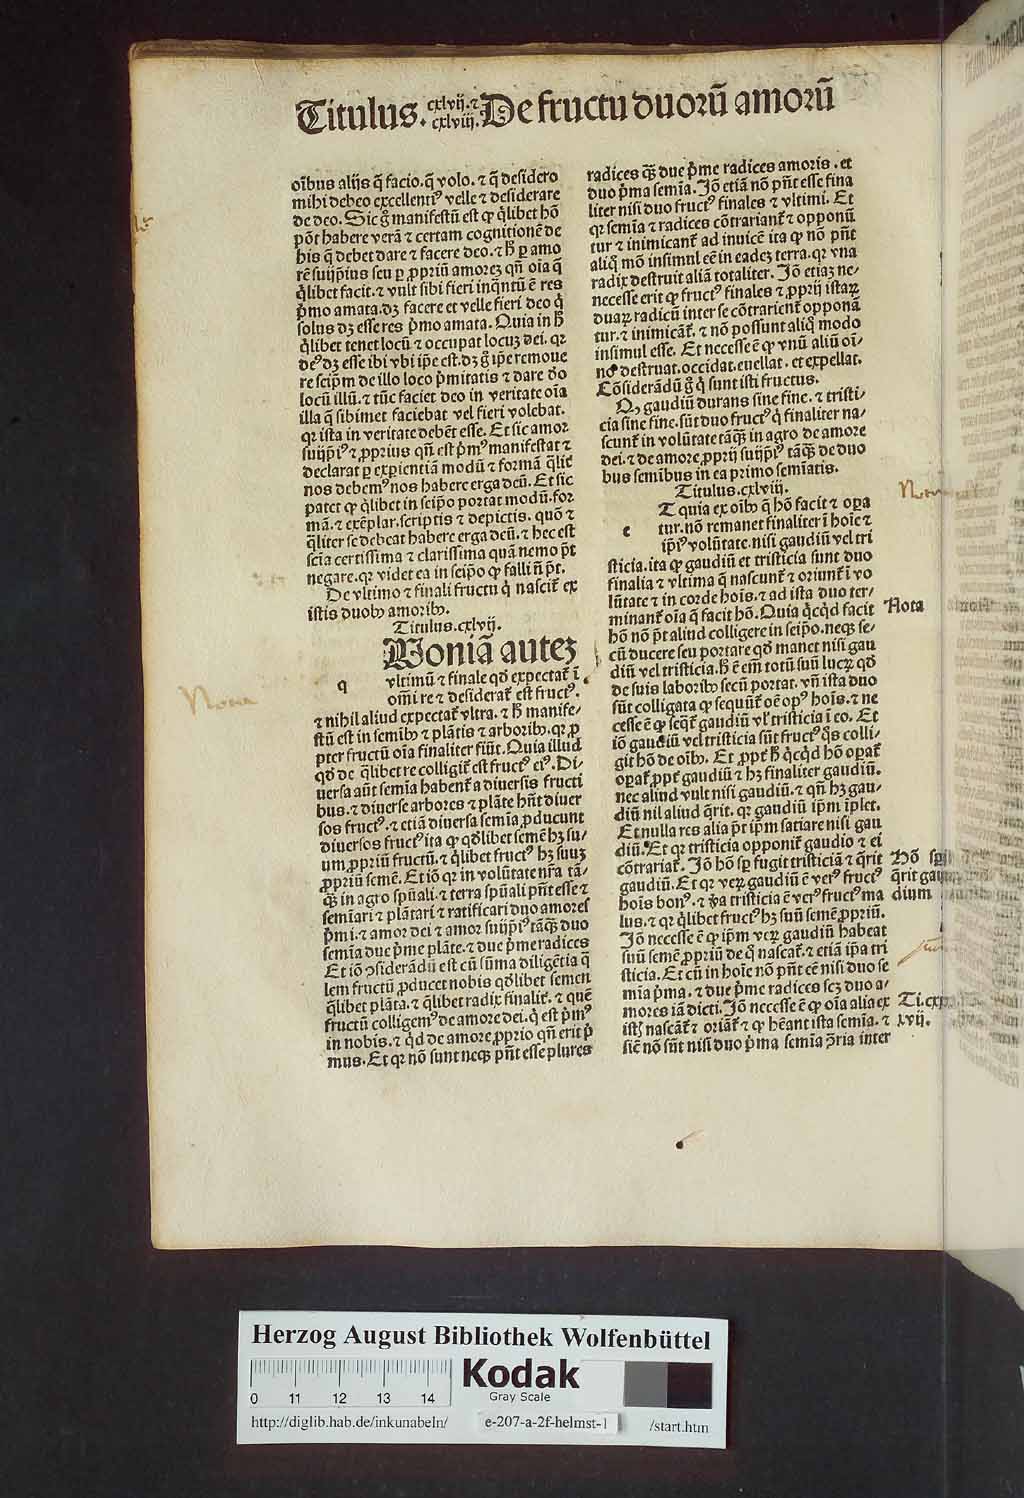 Titulus. cxlvij. ⁊ cxlviij. De fructu duorū amorū
oībus alijs q̄ facio. q̄ volo. ⁊ q̄ desidero
mihi debeo excellentiꝰ velle ⁊ desiderare
de deo. Sic g̊ manifestū est ꝙ q̇libet hō
pōt habere verā ⁊ certam cognitionē de
his q̄ debet dare ⁊ facere deo. ⁊ ħ ꝑ amo
rē suijp̄ius seu ꝑ ꝓpriū amorez qn̄ oīa q̄
q̇libet facit. ⁊ vult sibi fieri inq̄ntū ē res
p̄mo amata. dꝫ facere et velle fieri deo q̇
solus dꝫ esse res p̄mo amata. Quia in ħ
q̇libet tenet locū ⁊ occupat locuꝫ dei. qꝛ
deꝰ dꝫ esse ibi vbi ip̄e est. dꝫ g̊ ip̄e remoue
re seip̄m de illo loco p̄mitatis ⁊ dare deo
locū illū. ⁊ tūc faciet deo in veritate oīa
illa q̄ sibimet faciebat vel fieri volebat.
qꝛ ista in veritate debēt esse. Et sic amor
suijp̄iꝰ ⁊ ꝓprius qn̄ est p̄mꝰ manifestat ⁊
declarat ꝑ exꝑientiā modū ⁊ formā q̄lit̄
nos debemꝰ nos habere erga deū. Et sic
patet ꝙ q̇libet in seip̄o portat modū. for
mā. ⁊ exēplar. scriptis ⁊ depictis. quō ⁊
q̄liter se debeat habere erga deū. ⁊ hec est
scīa certissima ⁊ clarissima quā nemo p̄t
negare. qꝛ videt ea in seip̄o ꝙ falli n̄ p̄t.
De vltimo ⁊ finali fructu q̇ nascit̄ ex
istis duobꝰ amoribꝰ.
Titulus. cxlvij.
Uoniā autez
q
vltimū ⁊ finale qd̄ expectat̄ ī
om̄i re ⁊ desiderat̄ est fructꝰ.
⁊ nihil aliud expectat̄ vltra. ⁊ ħ manife/
stū est in semībꝰ ⁊ plātis ⁊ arboribꝰ. qꝛ ꝓ
pter fructū oīa finaliter fiūt. Quia illud
qd̄ de q̄libet re colligit̄ est fructꝰ eiꝰ. Di/
uersa aūt semīa habent̄ a diuersis fructi
bus. ⁊ diuerse arbores ⁊ plāte hn̄t diuer
sos fructꝰ. ⁊ etiā diuersa semīa ꝓducunt
diuersos fructꝰ ita ꝙ qd̄libet semē hꝫ su/
um ꝓpriū fructū. ⁊ q̇libet fructꝰ hꝫ suuꝫ
ꝓpriū semē. Et iō qꝛ in volūtate nr̄a tā/
q̄ꝫ in agro spūali. ⁊ terra spūali pn̄t esse ⁊
semīari ⁊ plātari ⁊ ratificari duo amores
p̄mi. ⁊ amor dei ⁊ amor suijp̄iꝰ tāq̄ꝫ duo
semīa due p̄me plāte. ⁊ due p̄me radices
Et iō ꝯsiderādū est cū sūma diligētia q̄
lem fructū ꝓducet nobis qd̄libet semen
q̄libet plāta. ⁊ q̄libet radix finalit̄. ⁊ quē
fructū colligemꝰ de amore dei. q̇ est p̄mꝰ
in nobis. ⁊ q̇d de amore ꝓprio qn̄ erit p̄
mus. Et qꝛ nō sunt neqꝫ pn̄t esse plures
radices q̄ꝫ due p̄me radices amoris. et
duo p̄ma semīa. Iō etiā nō pn̄t esse fina
liter nisi duo fructꝰ finales ⁊ vltimi. Et
qꝛ semīa ⁊ radices cōtrariant̄ ⁊ opponū
tur ⁊ inimicant̄ ad inuicē ita ꝙ nō pn̄t
aliq̄ mō insimul eē in eadeꝫ terra. qꝛ vna
radix destruit aliā totaliter. Iō etiaꝫ ne/
necesse erit ꝙ fructꝰ finales ⁊ ꝓprij istaꝝ
duaꝝ radicū inter se cōtrarient̄ opponā
tur. ⁊ inimicāt̄. ⁊ nō possunt aliq̄ modo
insimul esse. Et necesse ē ꝙ vnū aliū oī/
no destruat. occidat. euellat. et expellat.
Cōsiderādū g̊ q̇ sunt isti fructus.
Qꝙ gaudiū durans sine fine. ⁊ tristi/
cia sine fine. sūt duo fructꝰ q̇ finaliter na/
scunt̄ in volūtate tāq̄ꝫ in agro de amore
dei. ⁊ de amore ꝓprij suijp̄iꝰ tāq̄ꝫ de duo
bus semībus in ea primo semīatis.
Titulus. cxlviij.
T quia ex oībꝰ q̄ hō facit ⁊ oꝑa
e
tur. nō remanet finaliter ī hoīe ⁊
ip̄iꝰ volūtate. nisi gaudiū vel tri
sticia. ita ꝙ gaudiū et tristicia sunt duo
finalia ⁊ vltima q̄ nascunt̄ ⁊ oriunt̄ ī vo
lūtate ⁊ in corde hoīs. ⁊ ad ista duo ter/
minant̄ oīa q̄ facit hō. Quia q̇cq̇d facit
hō nō p̄t aliud colligere in seip̄o. neqꝫ se/
cū ducere seu portare qd̄ manet nisi gau
diū vel tristicia. ħ ē em̄ totū suū lucꝝ qd̄
de suis laboribꝰ secū portat. vn̄ ista duo
sūt colligata ꝙ sequūt̄ oē opꝰ hoīs. ⁊ ne
cesse ē ꝙ seq̄t̄ gaudiū vl̓ tristicia ī eo. Et
iō gaudiū vel tristicia sūt fructꝰ q̄s colli/
git hō de oībꝰ. Et ꝓpt̄ ħ q̇cq̇d hō oꝑat̄
oꝑat̄ ꝓpt̄ gaudiū ⁊ hꝫ finaliter gaudiū.
nec aliud vult nisi gaudiū. ⁊ qn̄ hꝫ gau/
diū nil aliud q̄rit. qꝛ gaudiū ip̄m īplet.
Et nulla res alia p̄t ip̄m satiare nisi gau
diū. Et qꝛ tristicia opponit̄ gaudio ⁊ ei
cōtrariat̄. Iō hō sꝑ fugit tristiciā ⁊ q̄rit
gaudiū. Et qꝛ veꝝ gaudiū ē verꝰ fructꝰ
hoīs bonꝰ. ⁊ v̓a tristicia ē verꝰ fructꝰ ma
lus. ⁊ qꝛ q̇libet fructꝰ hꝫ suū semē ꝓpriū.
Iō necesse ē ꝙ ip̄m veꝝ gaudiū habeat
suū semē ꝓpriū de q̇ nascat̄. ⁊ etiā ip̄a tri
sticia. Et cū in hoīe nō pn̄t eē nisi duo se
mīa p̄ma. ⁊ due p̄me radices scꝫ duo a/
mores iā dicti. Iō necesse ē ꝙ oīa alia ex
istꝭ nascāt̄ ⁊ oriāt̄ ⁊ ꝙ hēant ista semīa. ⁊
sīc nō sūt nisi duo p̄ma semīa ꝯ̄ria inter
Nota
Nota
Hō
q̄rit
dium
Ti.
xvij.
Herzog August Bibliothek Wolfenbüttel
Kodak
Gray Scale
0 11 12 13 14
http://diglib.hab.de/inkunabeln/ e-207-a-2f-helmst-1 /start.htm